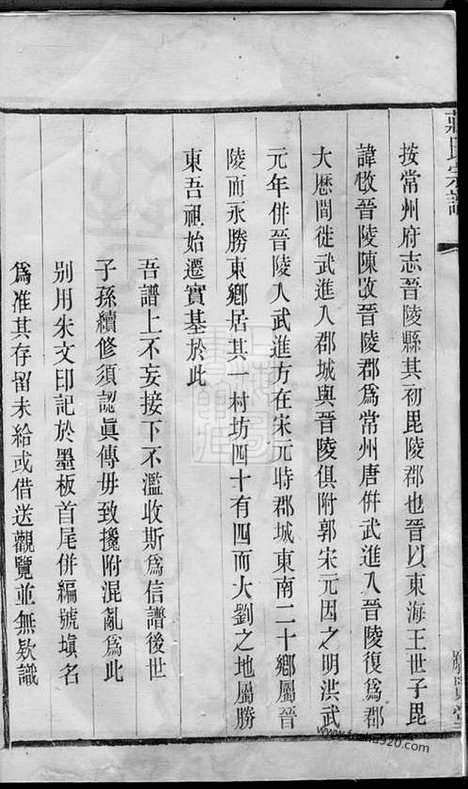 蔣氏宗譜
按常州府志晉陵縣其初毘陵郡也晉以東海王世子毘
諱改晉陵陳改晉陵郡爲常州唐併武進入晉陵復爲郡
大厯間徙武進入郡城與晉陵俱附郭宋元因之明洪武
元年併晉陵入武進方在宋元時郡城東南二十鄉屬晉
陵而永勝東鄉居其一村坊四十有四而大劉之地屬勝
東吾祖始遷實基於此
吾譜上不妄接下不濫收斯爲信譜後世
子孫續修須認眞傳毋致攙附混亂爲此
別用朱文印記於墨板首尾併編號塡名
爲准其存留未給或借送觀覽並無欵識
www.fosha920.com